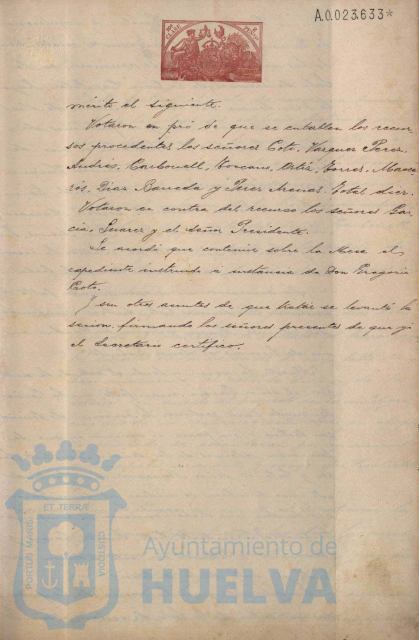 A.0.023.633*
mérito el siguiente.
Votaron en pró de que se entablen los recur
sos procedentes los señores Coto, Vazquez Perez,
Andrés, Carbonell, Toscano, Ortiz, Torres, Mace
rás, Diaz Barreda y Perez Arenas. Total diez.
Votaron en contra del recurso los señores Gar
cía, Suarez y el Señor Presidente.
Se acordó que continúe sobre la Mesa el
espediente instruido á instancia de Don Peregrin
Proto.
Y sin otros asuntos de que tratar se levantó la
sesion, firmando los señores presentes de que yo
el Secretario certifico.
PORTUS MARIS
ET TERRÆ
CUSTODIA
Ayuntamiento de
HUELVA